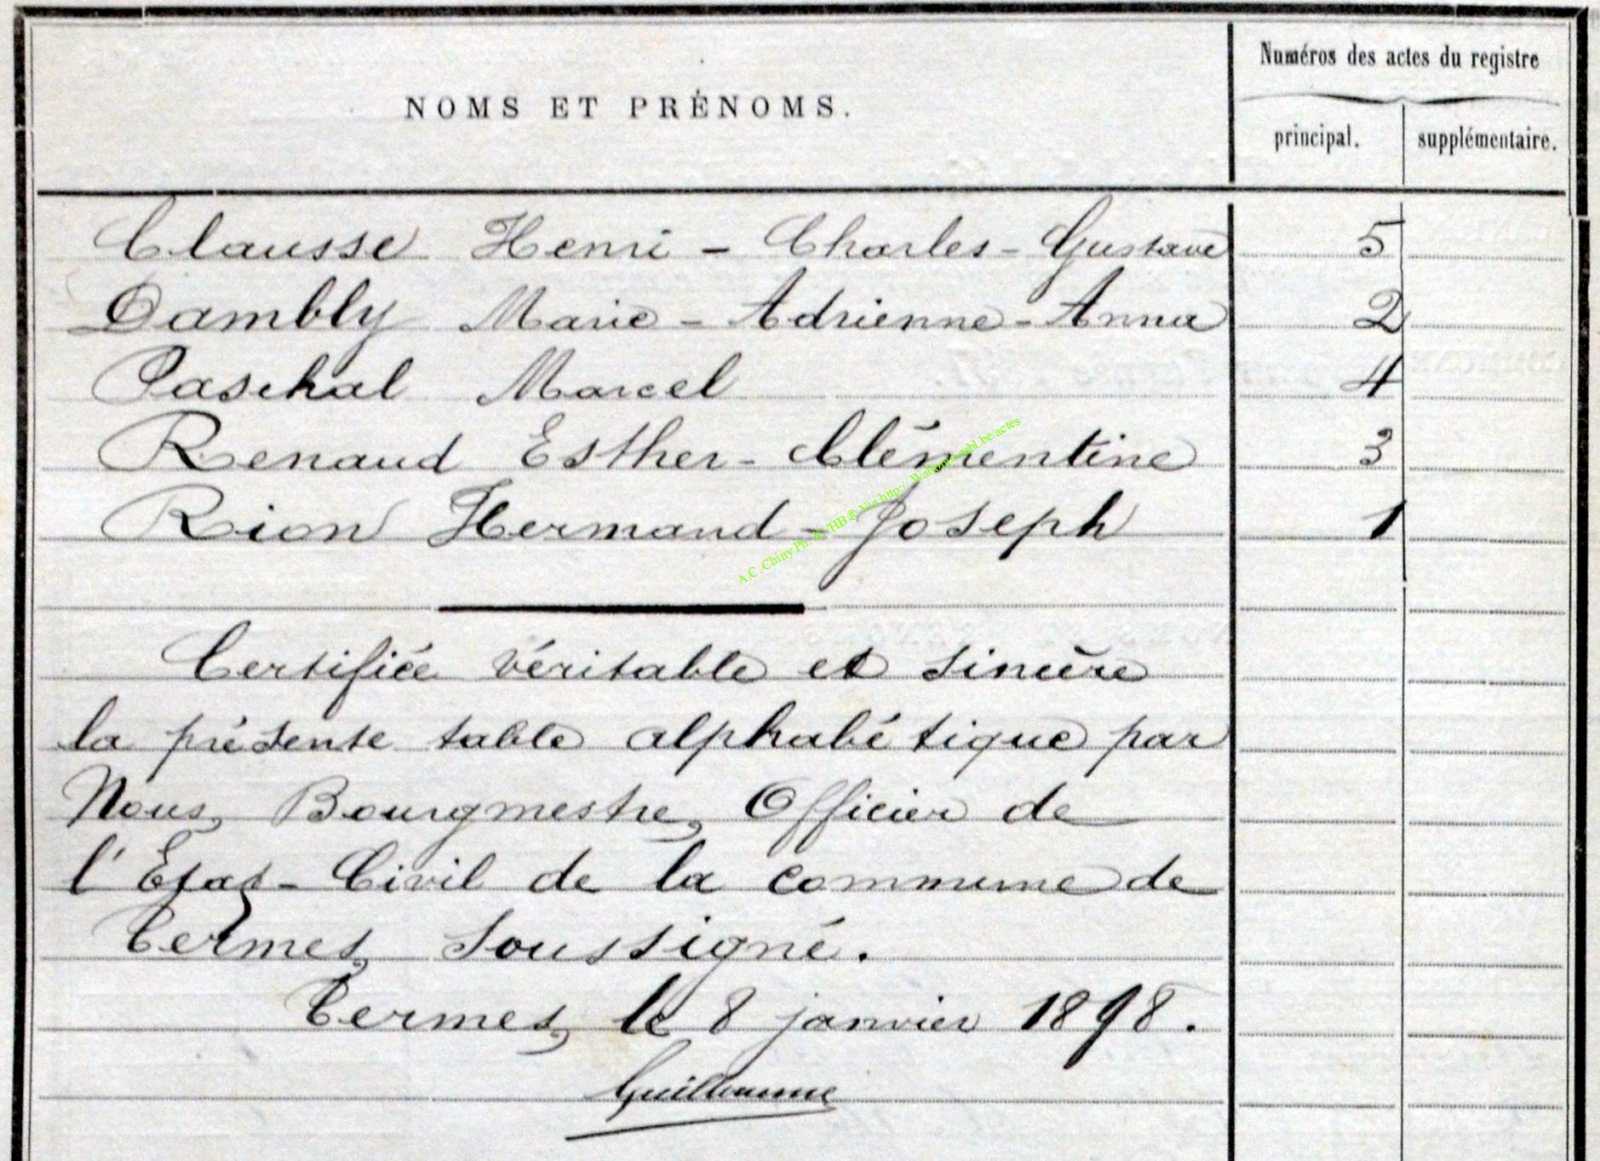 NOMS ET PRÉNOMS.
Numéros des actes du registre
principal. supplémentaire.
Clausse Henri - Charles - Gustave 5
Dambly Marie - Adrienne - Anna 2
Paschal Marcel 4
Renaud Esther - Clémentine 3
Rion Hermand - Joseph 1
A.C. Chiny
Certifiée véritable et sincère
la présente table alphabétique par
Nous, Bourgmestre, Officier de
l'État-Civil de la commune de
Termes, soussigné.
Termes, le 8 janvier 1898.
Guillaume